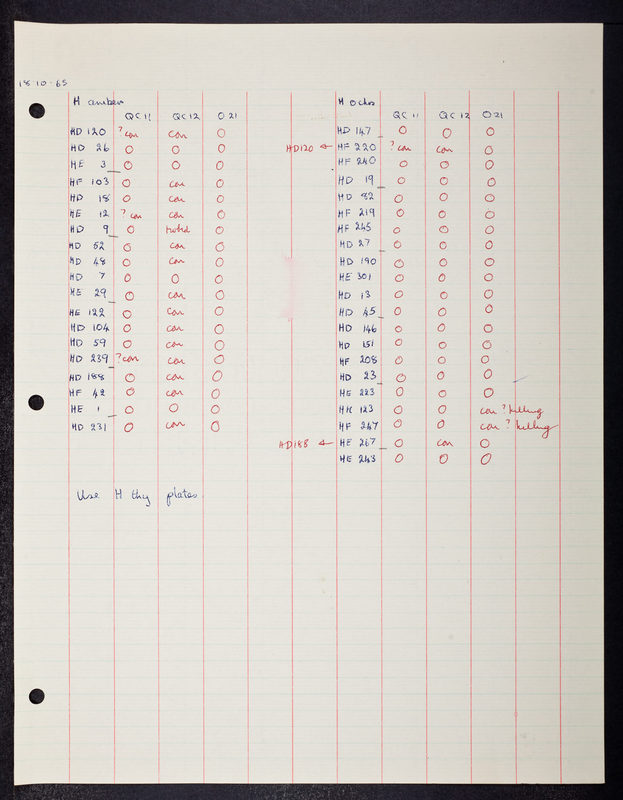 18-10-65
H amber
QC 11 QC 12 O 21
HD 120 ? con con O
HD 26 O O O
HE 3 O O O
HF 103 O con O
HD 18 O con O
HE 12 ? con con O
HD 9 O O
HD 52 O con O
HD 48 O con O
HD 7 O O O
HE 29 O con O
HE 122 O con O
HD 104 O con O
HD 59 O con O
HD 239 ? con con O
HD 188 O con O
HF 42 O con O
HE 1 O O O
HD 231 O con O
Use H thy plates.
H ochre
QC 11 QC 12 O21
HD 147 O O O
HD120 ← HF 220 ? con con O
HF 240 O O O
HD 19 O O O
HD 82 O O O
HF 219 O O O
HF 245 O O O
HD 27 O O O
HD 190 O O O
HE 301 O O O
HD 13 O O O
HD 45 O O O
HD 146 O O O
HD 151 O O O
HF 208 O O O
HD 23 O O O
HE 223 O O O
HK 123 O O con ? killing
HF 247 O O con ? killing
HD188 ← HE 267 O con O
HE 243 O O O